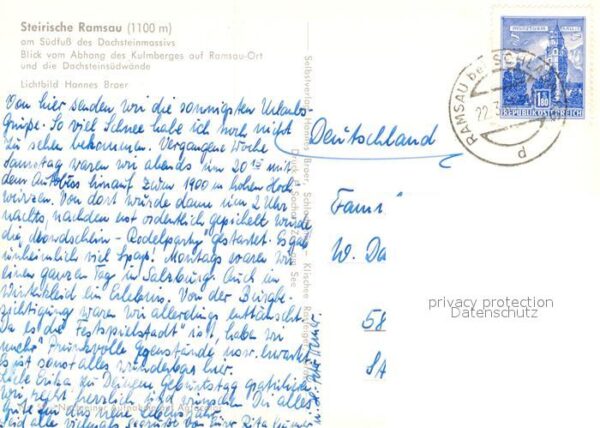 Steirische Ramsau (1100 m)
am Südfuß des Dachsteinmassivs
Blick vom Abhang des Kulmberges auf Ramsau-Ort
und die Dachsteinsüdwände
Lichtbild Hannes Braer
Von hier senden wir die sonnigsten Urlaubs-
grüße. So viel Schnee habe ich noch nicht
zu sehen bekommen. Vergangene Woche
Samstag waren wir abends um 20 15 mit
dem Autobus hinauf zum 1900 m hohen Hoch-
wurzen. Von dort wurde dann um 2 Uhr
nachts, nachdem erst ordentlich gepichelt wurde
die "Mondschein-Rodelparty" gestartet. Es gab
unheimlich viel Spaß! Montags waren wir
einen ganzen Tag in Salzburg. Auch im
ein Erlebnis. Von der Burgbe-
sichtigung waren wir allerdings enttäuscht.
Da es die "Festspielstadt" ist, haben wir
mehr Prunkvolle Gegenstände usw. erwartet.
Es ist sonst alles wunderbar hier.
Liebe Erika zu Deinem Geburtstag gratulieren
wir recht herzlich und wünschen Dir alles
Gute für das neue Lebensjahr.
Seid alle vielmals gegrüßt von Eurer Rita
Deutschland
Fami
W. Da
58
SA
REPUBLIK ÖSTERREICH
1.80
RAMSAU bei SCHLA
22.3
d
privacy protection
Datenschutz